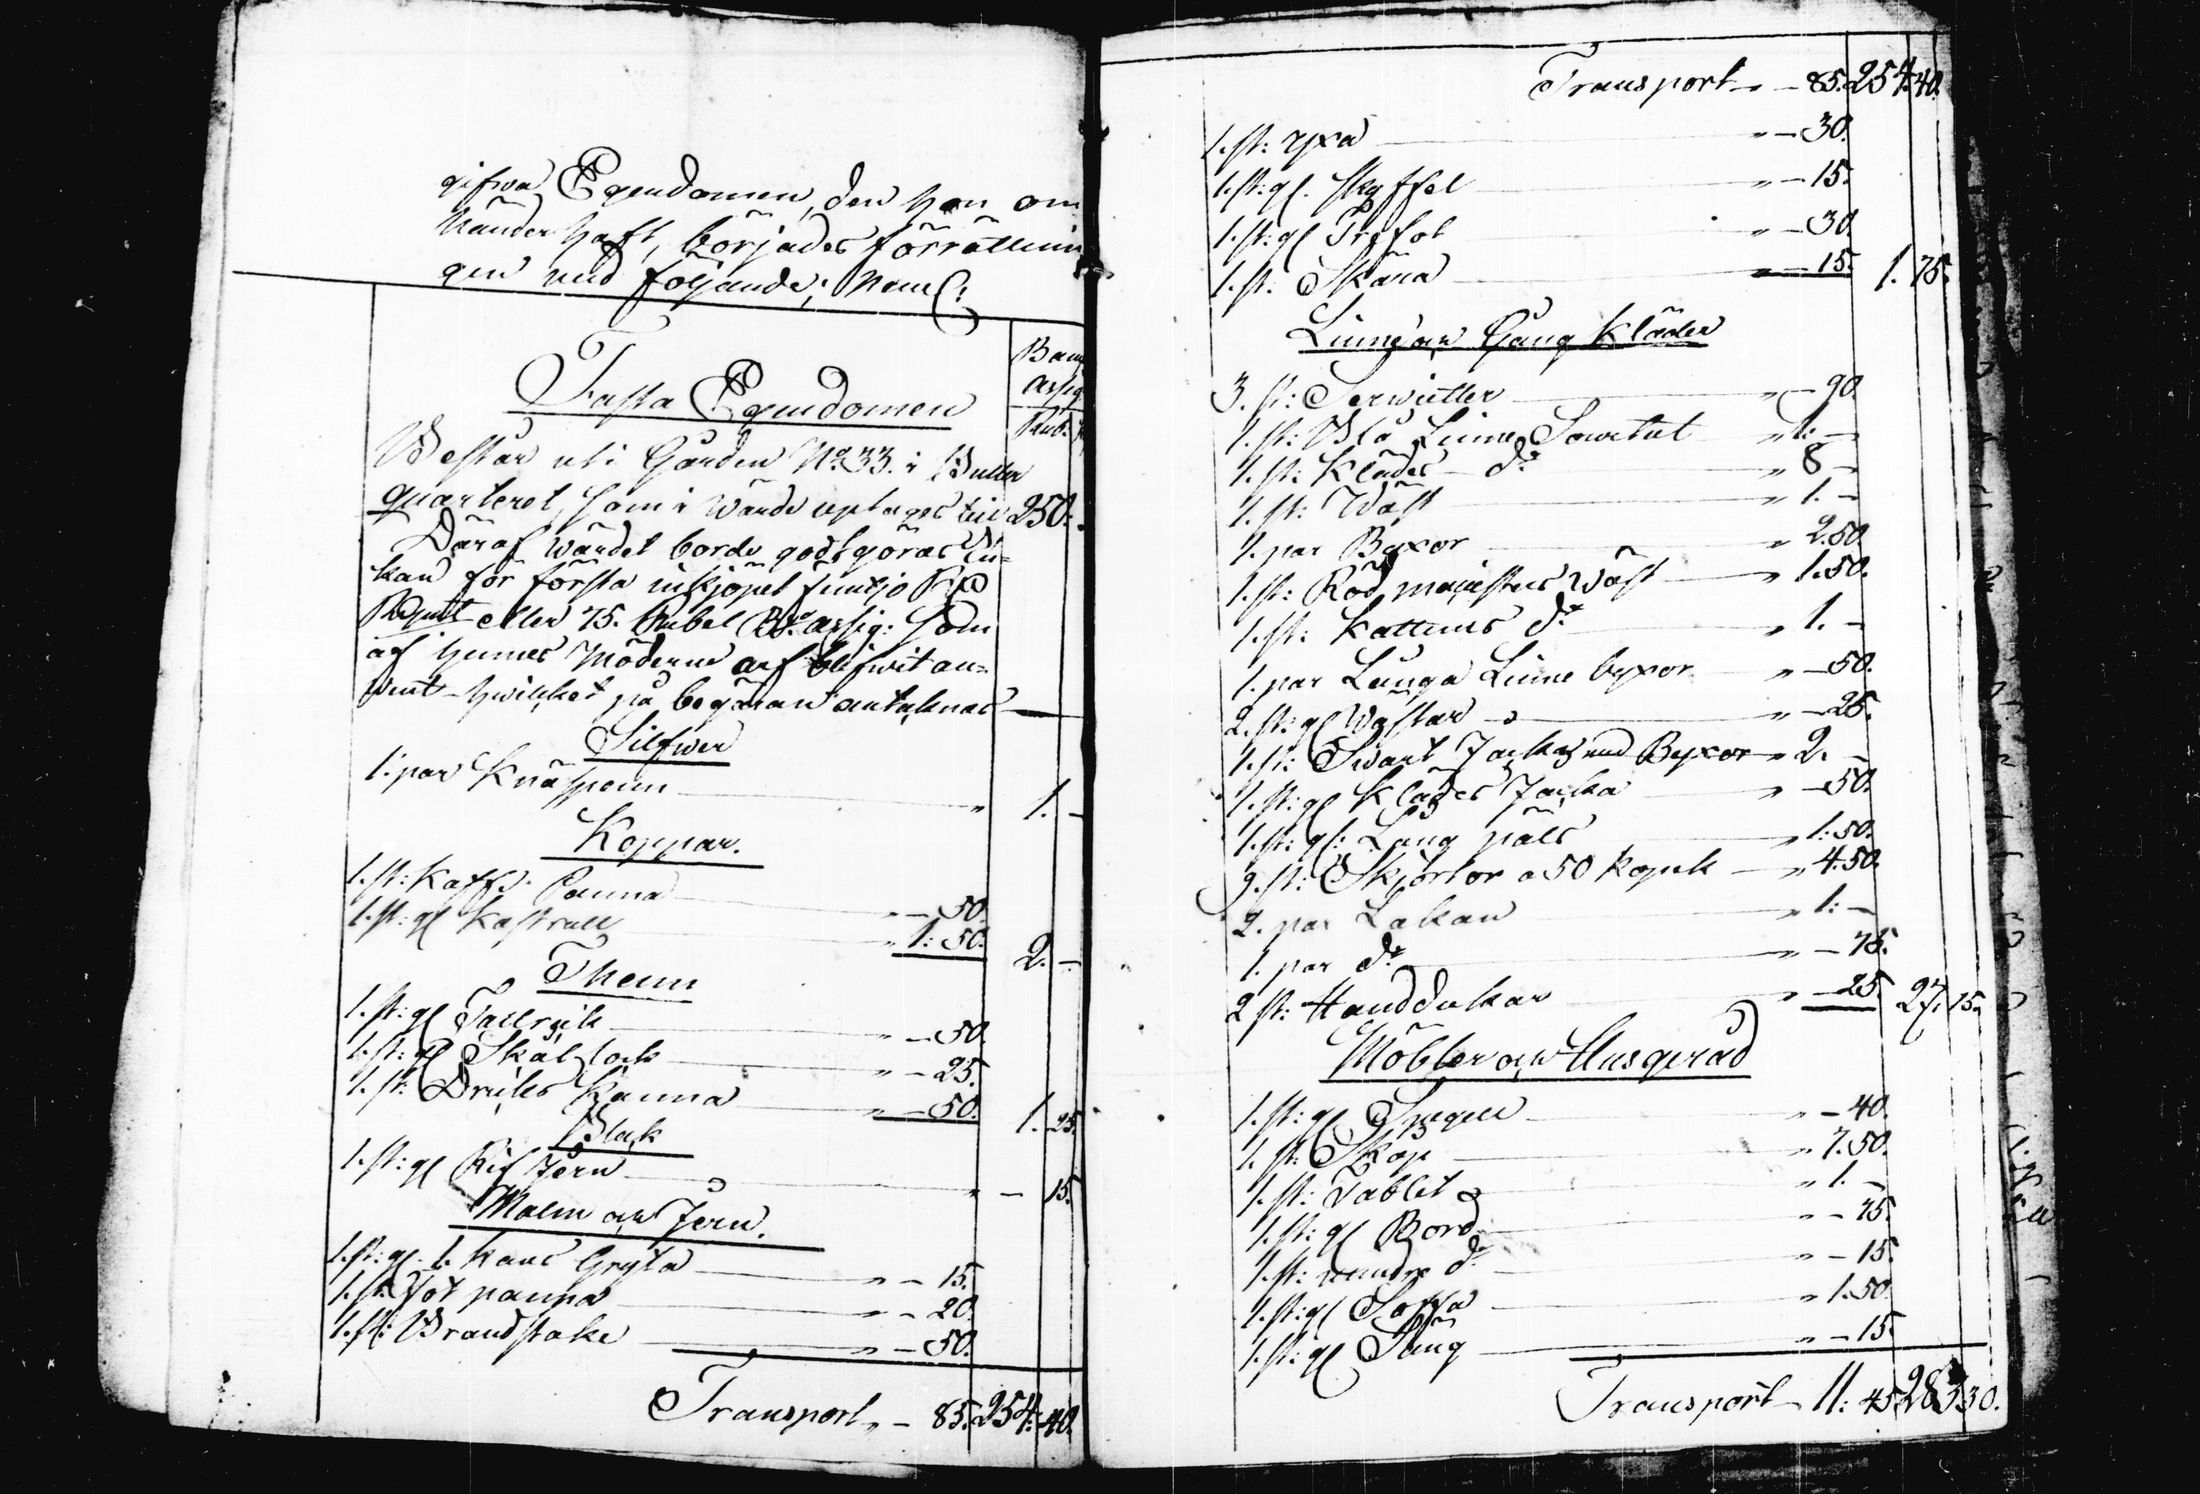 gifwa Egendomen, den han om
händer haft, börjades förrättnin
gen med följande; Neml:
Banc
Assig
Rub. K
Fasta Egendomen
Består uti Gården No 33. i Buller
quarteret, som i wärde uptages till 250:
Däraf wärdet borde godtgöras En-
kan för första inkjöpet femtjo R:d
Rgmt eller 75. Rubel B:co assig: som
af hennes Möderne arf blifwit an-
wänt hwilket på begäran antaknas
Silfwer
1. par Knäspenn " 1. -
Koppar.
1. st: Kaffe Panna " - 50.
1. st: gl Kastrull " 1: 50. 2. -
Thenn
1. st: gl Tallrick " - 50.
1. st: gl Skål lock " - 25.
1. st: Dricks Kanna " - 50. 1. 25.
Bläck
1. st: gl Rif Jern " - 15.
Malm och Jern.
1. st: gl. 1. Kans Gryta " - 15.
1. st: Fot panna " - 20.
1. st: Brandstake " - 50.
Transport " - 85. 254. 40.
Transport " - 85. 254. 40.
1. st: Yxa " - 30.
1. st: gl. Skyffel " - 15.
1. st: gl Trefot " - 30.
1. st. Skära " - 15. 1. 75.
Linne och Gång Kläder
3. st: Serwietter " - 90.
1. st: Blå Linne Sourtut " 1. -
1. st: Klädes do " 8 -
1. st: Wäst " 1. -
1. par Byxor " 2.50.
1. st: Röd manchesters Wäst " 1.50.
1. st: Kattuns do " 1. -
1. par Långa Linne byxor " - 50.
2. st: gl Wästar " - 25.
1. st: Swart Jacka med Byxor " 2. -
1. st: gl Klädes Jacka " - 50.
1. st: gl: Lång päls " 1: 50.
9. st: Skjortor a 50 kopek " 4.50.
2. par Lakan " 1: -
1. par do " - 75.
2 st: Handdukar " - 25. 27. 15.
Möbler och Husgeråd
1. st: gl Spegell " - 40.
1. st: Skåp " 7.50.
1. st: Tablet " 1. -
1. st: gl Bord " - 75.
1. st: mindre do " - 15.
1. st: gl Soffa " 1.50.
1. st: gl Säng " - 15.
Transport 11: 45. 283 30.